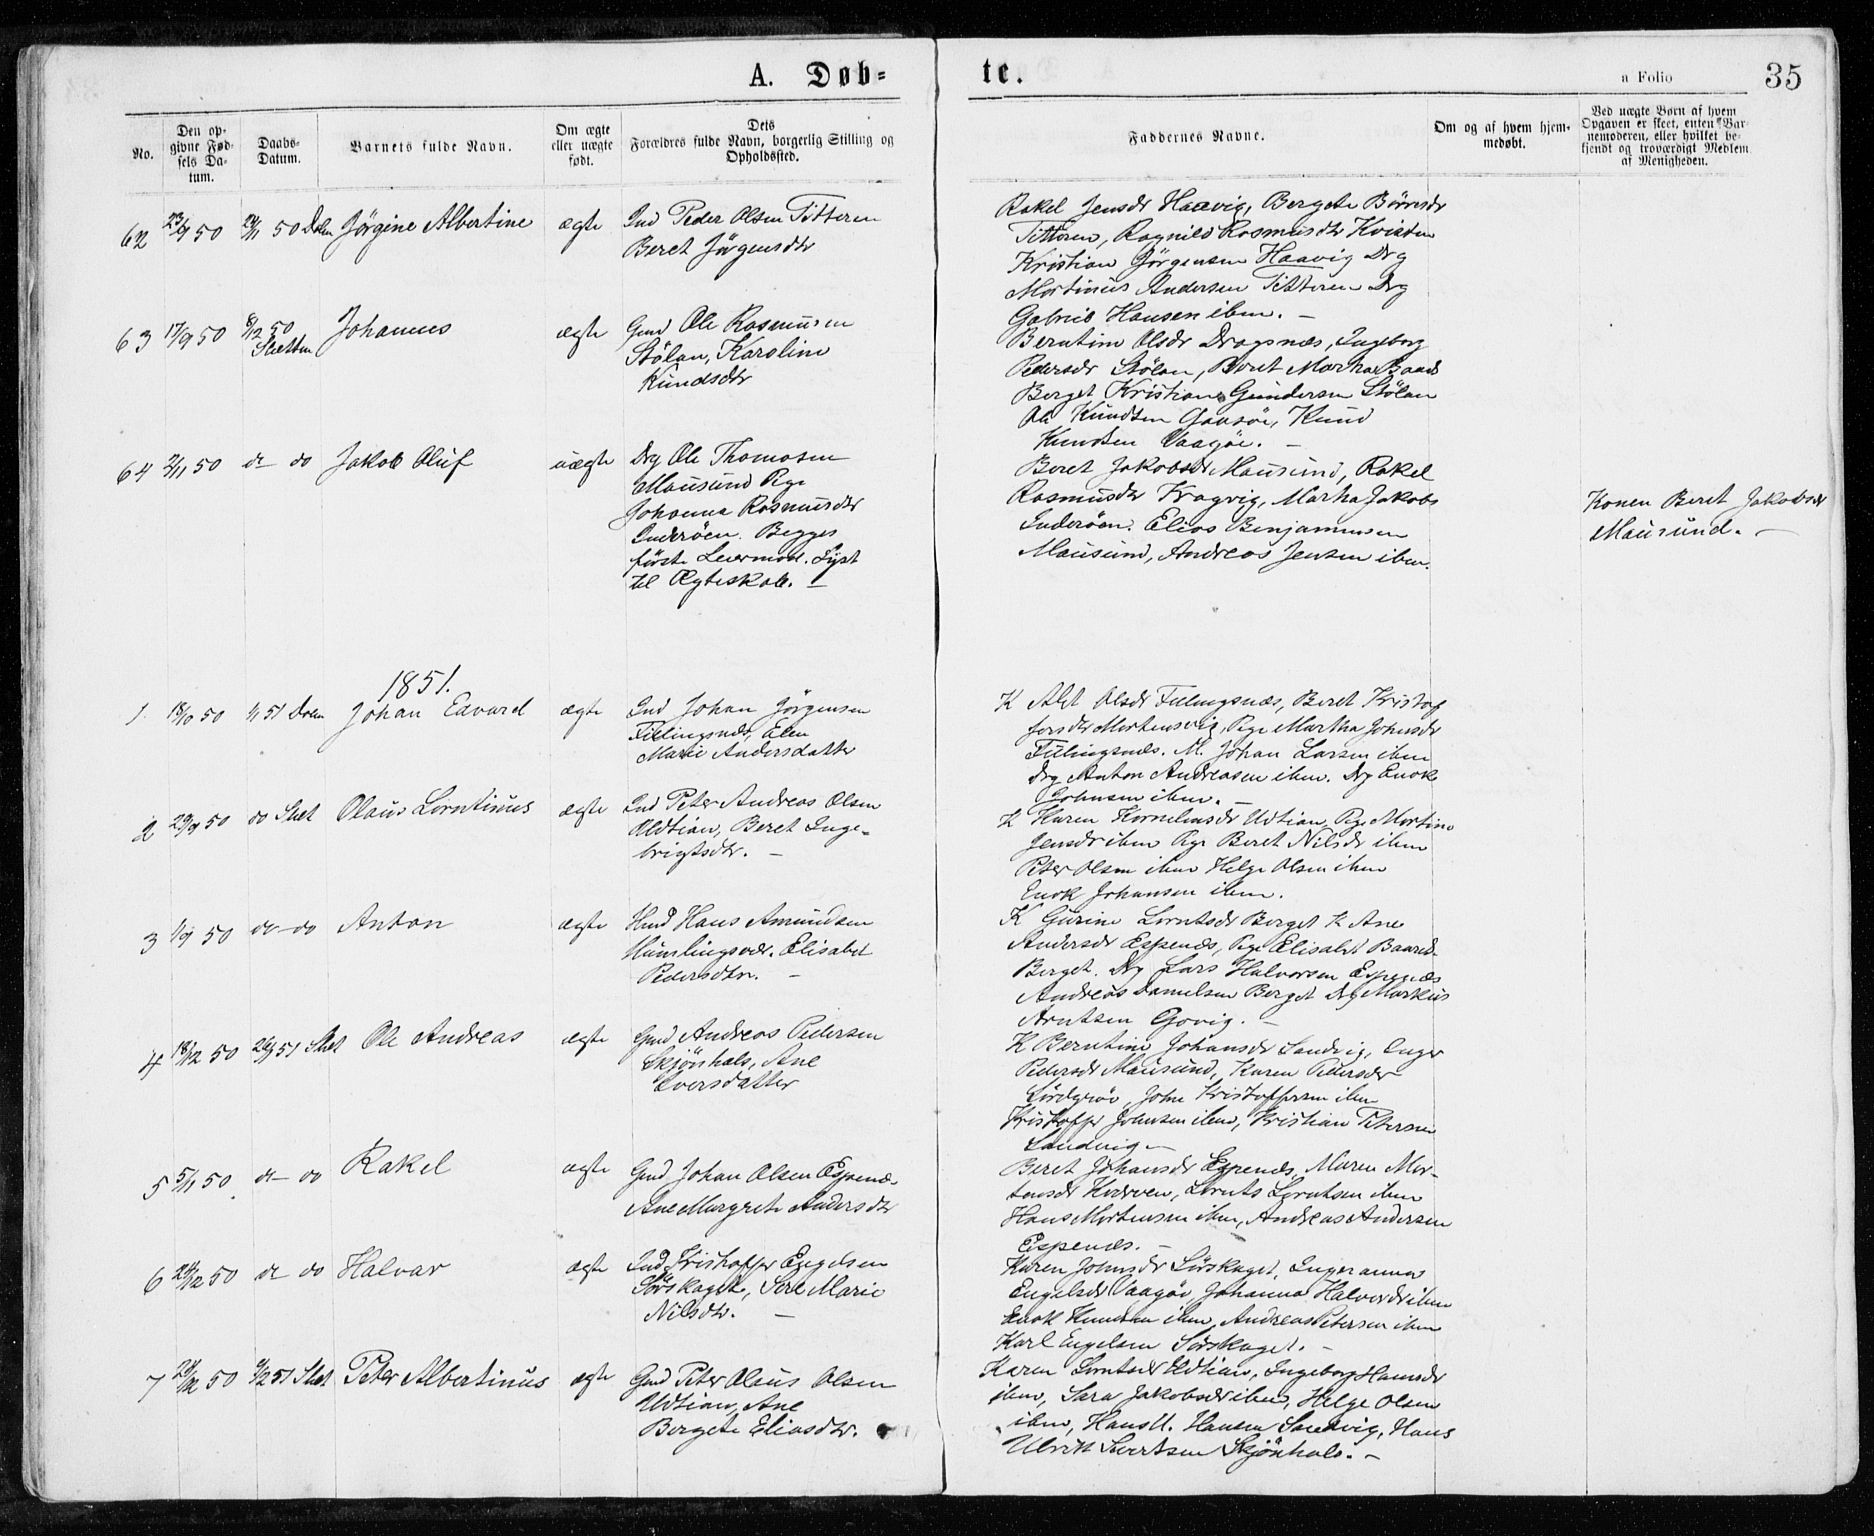 A. Døb-
te.
a Folio 35
No.
Den op-
givne Fød-
sels Da-
tum.
Daabs-
Datum.
Barnets fulde Navn.
Om ægte
eller uægte
født.
Dets
Forældres fulde Navn, borgerlig Stilling og
Opholdssted.
Faddernes Navne.
Om og af hvem hjem-
medøbt.
Ved uægte Børn af hvem
Opgaven er skeet, enten Bar-
nemoderen, eller hvilket be-
kjendt og troværdigt Medlem
af Menigheden.
62 23/9 50 50 Dolm Jörgine Albertine ægte Ind Peder Olsen Titteren
Beret Jörgensdtr
Rakel Jensdr Haavig, Bergete Börresdr
Titteren, Ragnild Rasmusdtr Kvisten
Kristian Jörgensen Haavig Drg
Martinus Andersen Titteren Drg
Gabriel Hansen ibm. —
63 17/9 50 8/12 50
Sletten Johannes ægte Gmd Ole Rasmusen
Stölan, Karoline
Knudsdtr
Berntine Olsdr Dragsnæs, Ingeborg
Pedersdr Stölan, Beret Martha Baards
Berget Kristian Gundersen Stölan
Ole Knudsen Gaasöe, Knud
Knudsen Vaagöe. —
64 2/11 50 do do Jakob Oluf uægte Drg Ole Thomasen
Mausund Pige
Johanna Rasmusdtr
Inderöen. Begges
förste Leiermaal. Lyst
til Ægteskab. —
Beret Jakobsdr Mausund, Rakel
Rasmusdtr Kragvig, Martha Jakobs
Inderöen. Elias Benjaminsen
Mausund, Andreas Jensen ibm.
Konen Beret Jakobsdr
Mausund. —
1851.
1. 18/10 50 1/1 51 Dolm Johan Edvard ægte Ind Johan Jörgensen
Fillingsnæs, Elen
Marie Andersdatter
K Alet Olsdr Fillingsnæs, Beret Kristof
fersdtr Mortensvig, Pige Martha Johnsdr
Fillingsnæs. M. Johan Larsen ibm
Drg Anton Andreasen ibm. Drg Enok
Johnsen ibm. —
2 29/9 50 do Slet Olaus Lorntinus ægte Ind Peter Andreas Olsen
Udtian, Beret Inge-
brigtsdtr. —
K Karen Korneliusdr Udtian, Pige Martine
Jensdr ibm Pige Beret Nilsdr ibm
Peter Olsen ibm Helge Olsen ibm
Enok Johansen ibm.
3 1/9 50 do do Anton ægte Hmd Hans Amundsen
Humlingsvær. Elisabet
Pedersdtr. —
K Gurine Lorntsdr Berget K Ane
Andersdr Espenæs, Pige Elisabet Baards
Berget. Drg Lars Halvorsen Espenæs
Andreas Danielsen Berget Drg Markus
Arntsen Govig. —
4 18/12 50 26/1 51 Slet Ole Andreas ægte Gmd Andreas Pedersen
Skjönhals, Ane
Iversdatter
K Berntine Johansdr Sandvig, Inger
Pedersdr Mausund, Karen Pedersdr
John Kristoffersen ibm
Kristoffer Johnsen ibm, Kristian Petersen
Sandvig —
5 5/11 50 do do Rakel ægte Gmd Johan Olsen Espenæs
Ane Margrete Andersdtr
Beret Johansdr Espenæs, Maren Mor-
tensdr Kverven, Lornts Lorntsen ibm
Hans Mortensen ibm, Andreas Andersen
Espenæs. —
6 24/12 50 do do Halvar ægte Ind Kristoffer Engelsen
Sörskaget, Sere Marie
Nilsdtr. —
Karen Johnsdr Sörskaget, Inger anna
Engelsdr Vaagöe, Johanna Halvordr ibm
Enok Knudsen ibm, Andreas Petersen ibm
Karl Engelsen Sörskaget. —
7 29/12 50 9/2 51 Slet Peter Albertinus ægte Gmd Peter Olaus Olsen
Udtian, Ane
Bergete Eliasdtr.
Karen Lorntsdr Udtian, Ingeborg Hansdr
ibm, Sara Jakobsdr ibm, Helge Olsen
ibm, Hans U. Hansen Sandvig, Hans
Ulrik Sivertsen Skjönhals. —